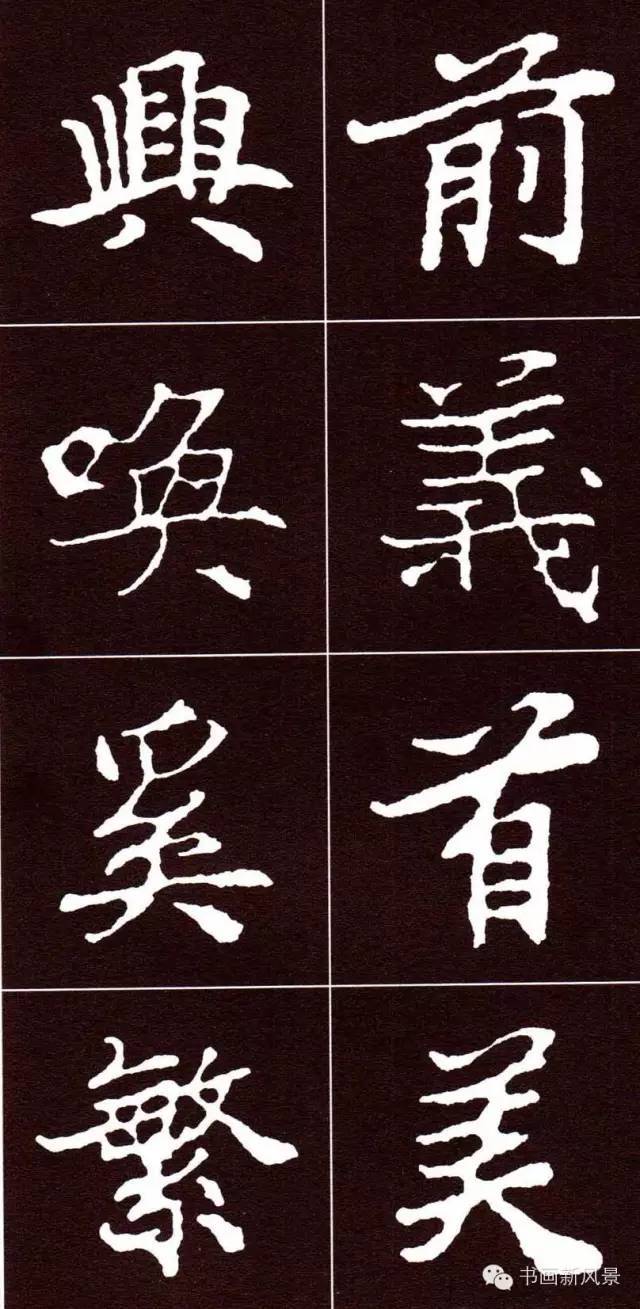 前義首美
興喚奚繁
书画新风景